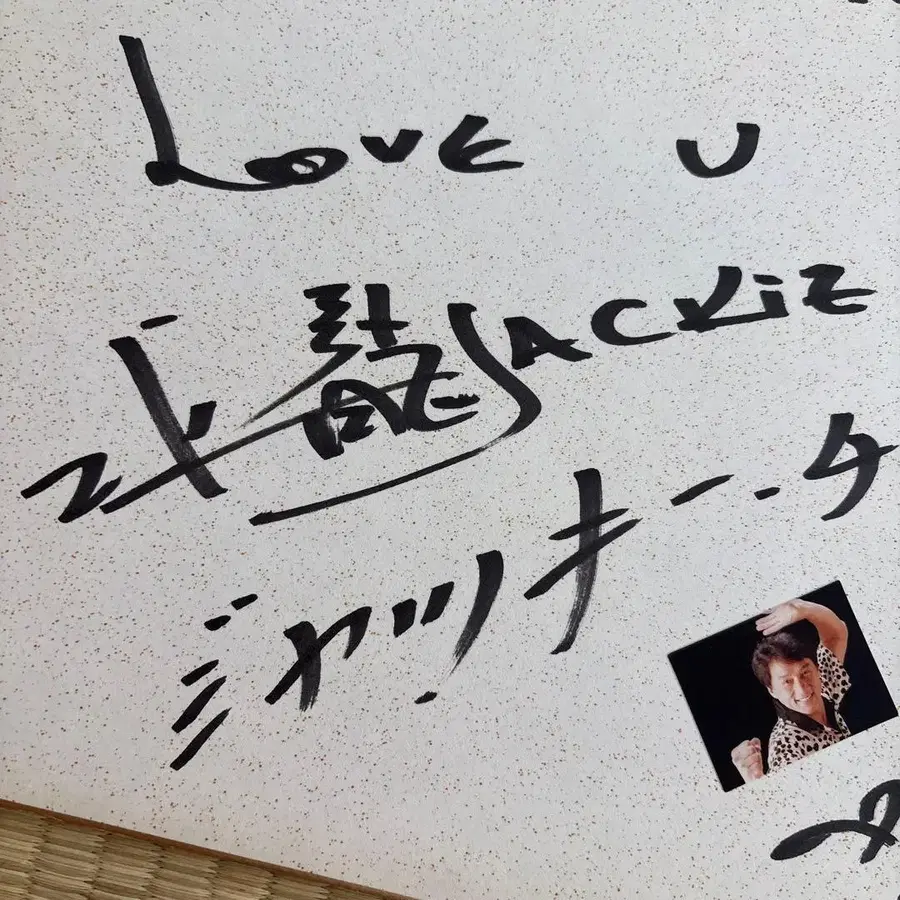 Love U
成龍 JACKiE
ジャッキー・チ